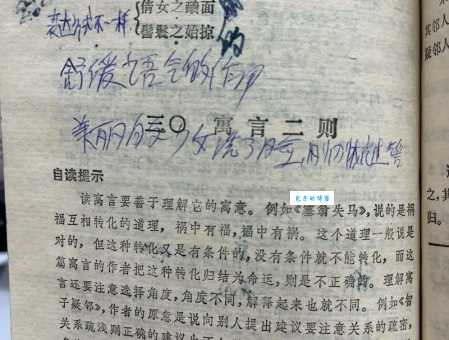 倩女之靧面
表达方式不一样 髻鬟之始掠
舒缓语气的作用
三〇 寓言二则
自读提示
读寓言要善于理解它的寓意。例如《塞翁失马》,说的是祸
福互相转化的道理,祸中有福,福中有祸。这个道理一般说是
对的,但这种转化又是有条件的,没有条件就不能转化,而这
篇寓言的作者把这种转化归结为命运,则是不正确的。理解寓
言还要注意选择角度,角度不同,解释起来也就不同。例如《智
子疑邻》,作者的原意是说向别人提出建议要注意关系的疏密,
关系疏浅则正确的建议也不
其邻人
疑邻人
之,其
归。